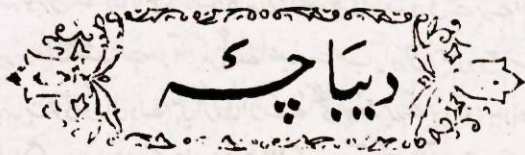 دیبَاچۂ